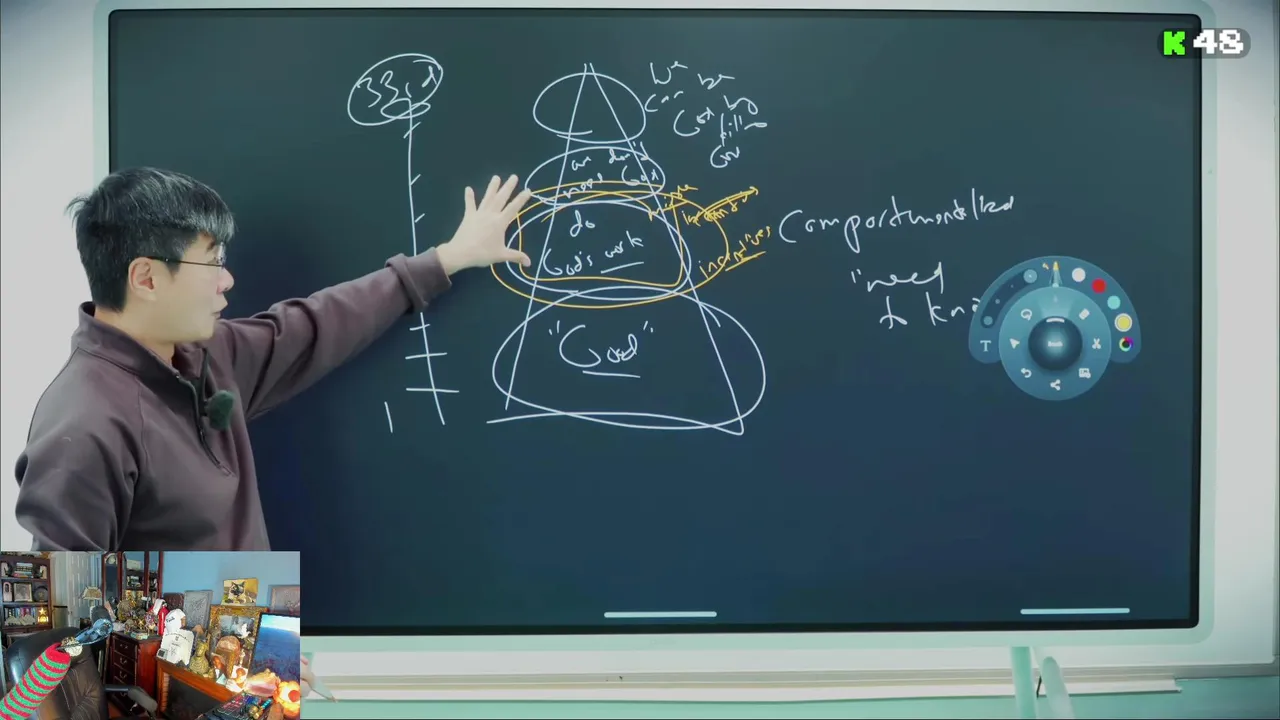 K 48
33rd
We
can be
God by
killing
God
we don't
need God
do
God's work
incentives
Compartmentalized
"need
to kn
"God"
1
T